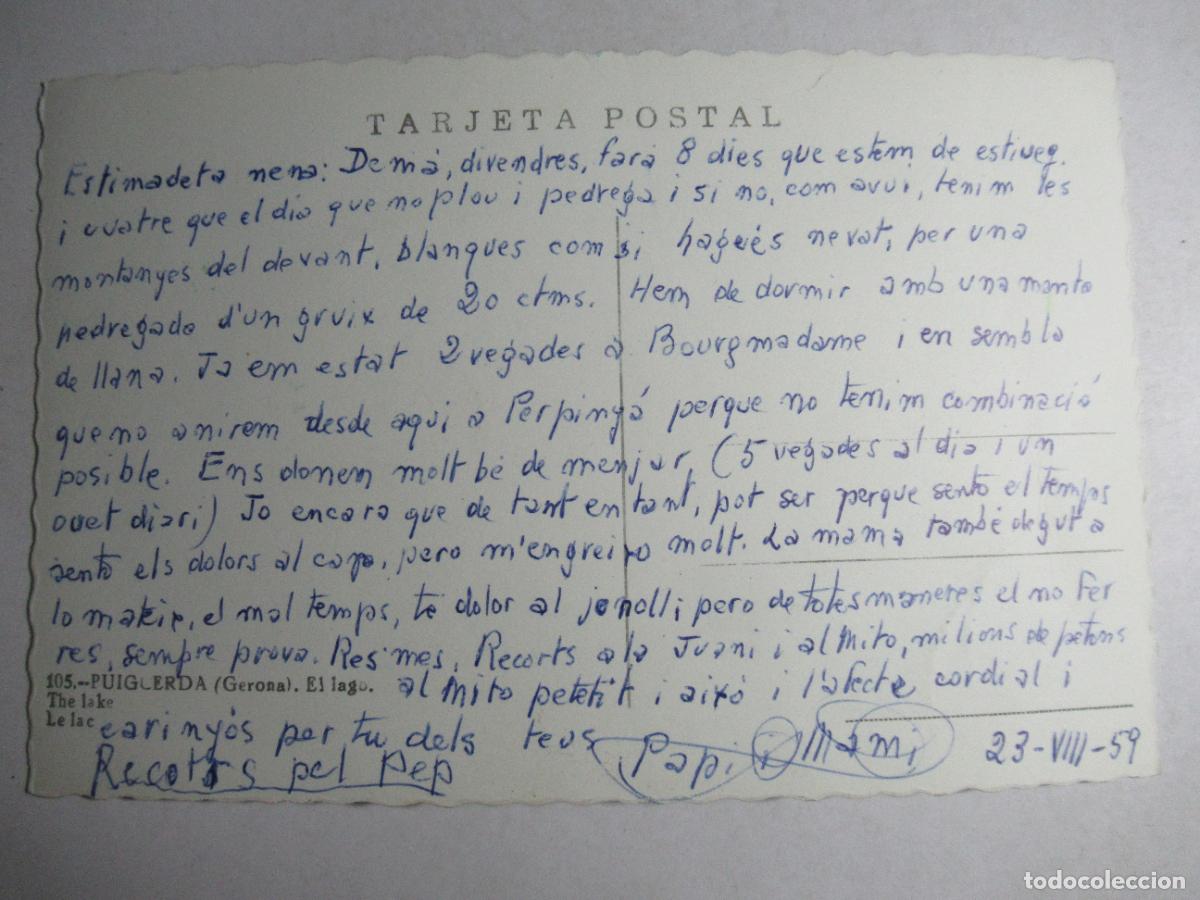 TARJETA POSTAL
Estimadeta nena: Demà, divendres, farà 8 dies que estem de estiueg.
i cuatre que el dia que no plou i pedrega i si no, com avui, tenim les
montanyes del devant, blanques com si hagués nevat, per una
pedregada d'un gruix de 20 ctms. Hem de dormir amb una manta
de llana. Ja em estat 2 vegades a Bourgmadame i en sembla
que no anirem desde aqui a Perpinyá perque no tenim combinació
posible. Ens donem molt bé de menjar, (5 vegades al dia i un
ouet diari) Jo encara que de tant en tant, pot ser perque sento el temps
sento els dolors al cap, pero m'engreixo molt. La mama també degut a
lo mateix, el mal temps, té dolor al jonoll i pero de totes maneres el no fer
res, sempre prova. Res mes, Recorts a la Juani i al Mito, milions de petons
al Mito petetit i aixó i l'afecte cordial i
carinyós per tu dels teus Papi i Mami 23-VIII-59
Recorts pel Pep
105.-PUIGCERDA (Gerona). El lago.
The lake
Le lac
todocoleccion